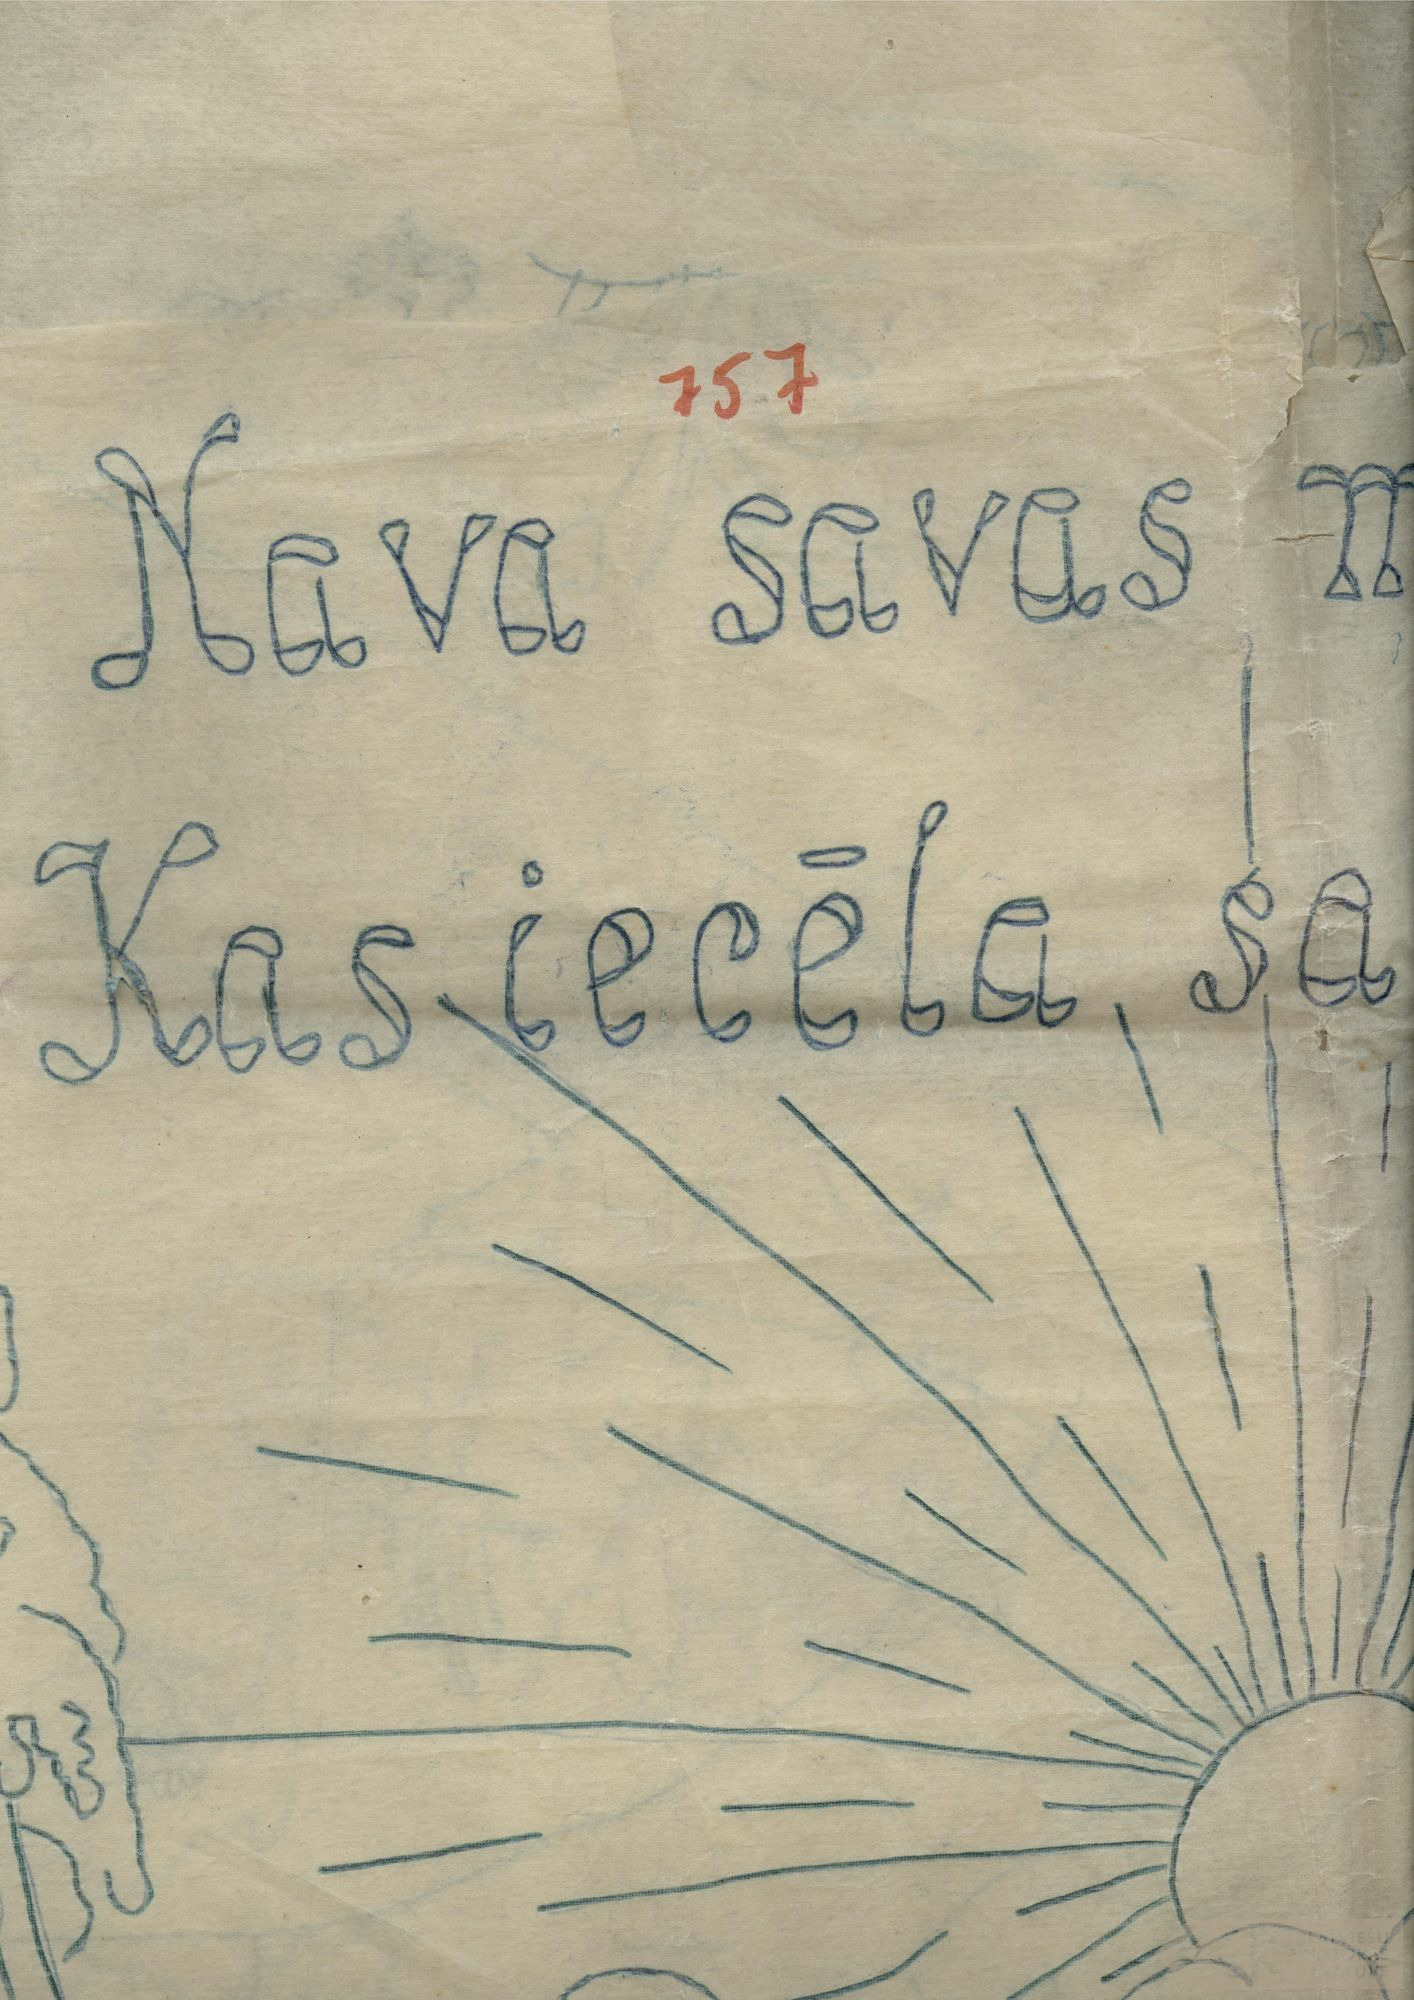 757
Nava savas m
Kas iecēla sa